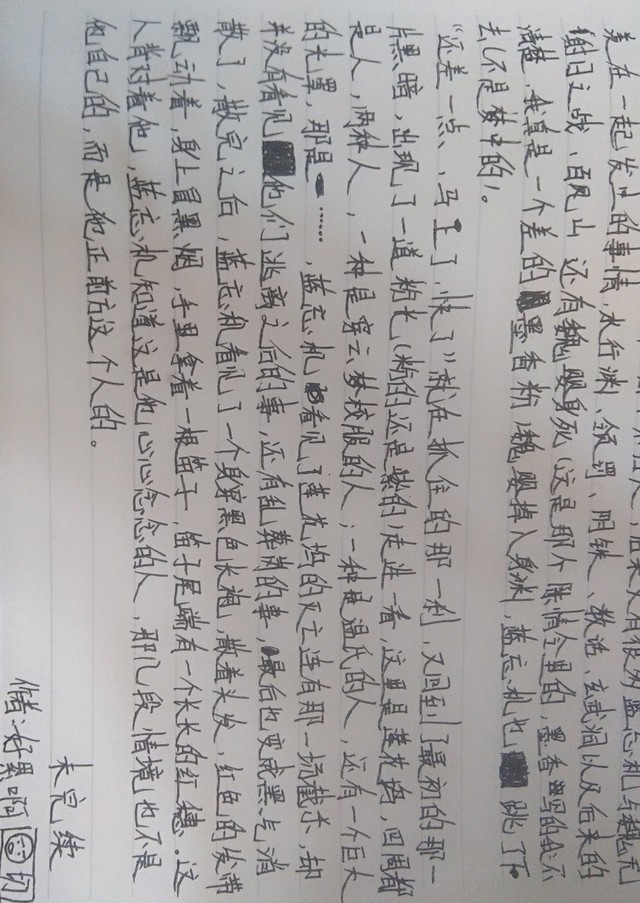 来在一起发生的事情,水行渊、领罚、阴铁、教选、玄武洞以及后来的
射日之战、百见山 还有魏婴身死(这是那个陈情令里的,墨香写的我不
清楚,我真是一个差的墨香粉)魏婴掉入身渊,蓝忘机也跳了下
去(不是梦中的)。
“还差一点、马上了、快了”就在抓住的那一刹,又回到了最初的那一
片黑暗,出现了一道粉光(粉的还是紫的)走进一看,这里是莲花坞,四周都
是人,两种人,一种是穿云梦校服的人;一种是温氏的人,还有一个巨大
的光罩,那是……,蓝忘机看见了莲花坞的灭亡连有那一场截杀,却
并没有看见他们逃离之后的事,还有乱葬岗的事,最后也变成黑气消
散了,散完之后,蓝忘机看见了一个身穿黑色长袍,散着头发,红色的发带
飘动着,身上冒黑烟,手里拿着一根笛子,笛子尾端有一个长长的红穗。这
人背对着他,蓝忘机知道这是他心心念念的人,那几段情境也不是
他自己的,而是他正前方这个人的。
未完续
作者:好累啊 切